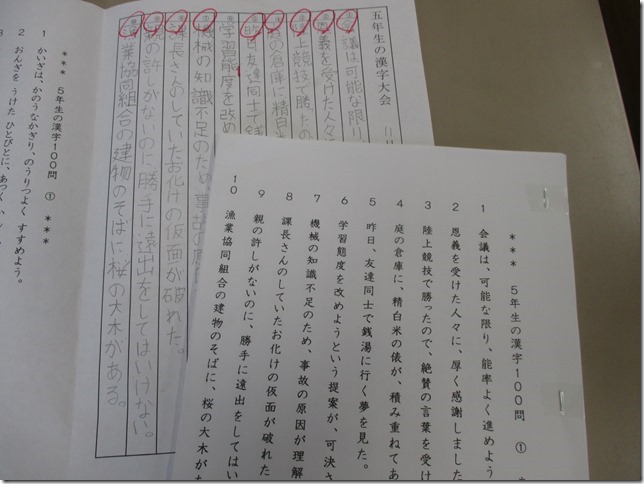 *** 5年生の漢字100問 ① ***
1 会議は、可能な限り、能率よく進めよう
2 恩義を受けた人々に、厚く感謝しました
3 陸上競技で勝ったので、絶賛の言葉を受け
4 庭の倉庫に、精白米の俵が、積み重ねてあ
5 昨日、友達同士で銭湯に行く夢を見た。
6 学習態度を改めようという提案が、可決さ
7 機械の知識不足のため、事故の原因が理解
8 課長さんのしていたお化けの仮面が破れた
9 親の許しがないのに、勝手に遠出をしてはい
10 漁業協同組合の建物のそばに、桜の大木が
五年生の漢字大会
議は可能な限り、
義を受けた人々
上競技で勝たの
の倉庫に精白
日友達同士で銭
学習態度を改め
機械の知識不足のため、事故の原
課長さんのしていたお化けの仮面が破れた。
の許しがないのに、勝手に遠出をしてはいけない。
漁業協同組合の建物のそばに桜の大木がある。
*** 5年生の漢字100問 ① ***
1 かいぎは、かのうなかぎり、のうりつよく すすめよう。
2 おんぎを うけた ひとびとに、あつく